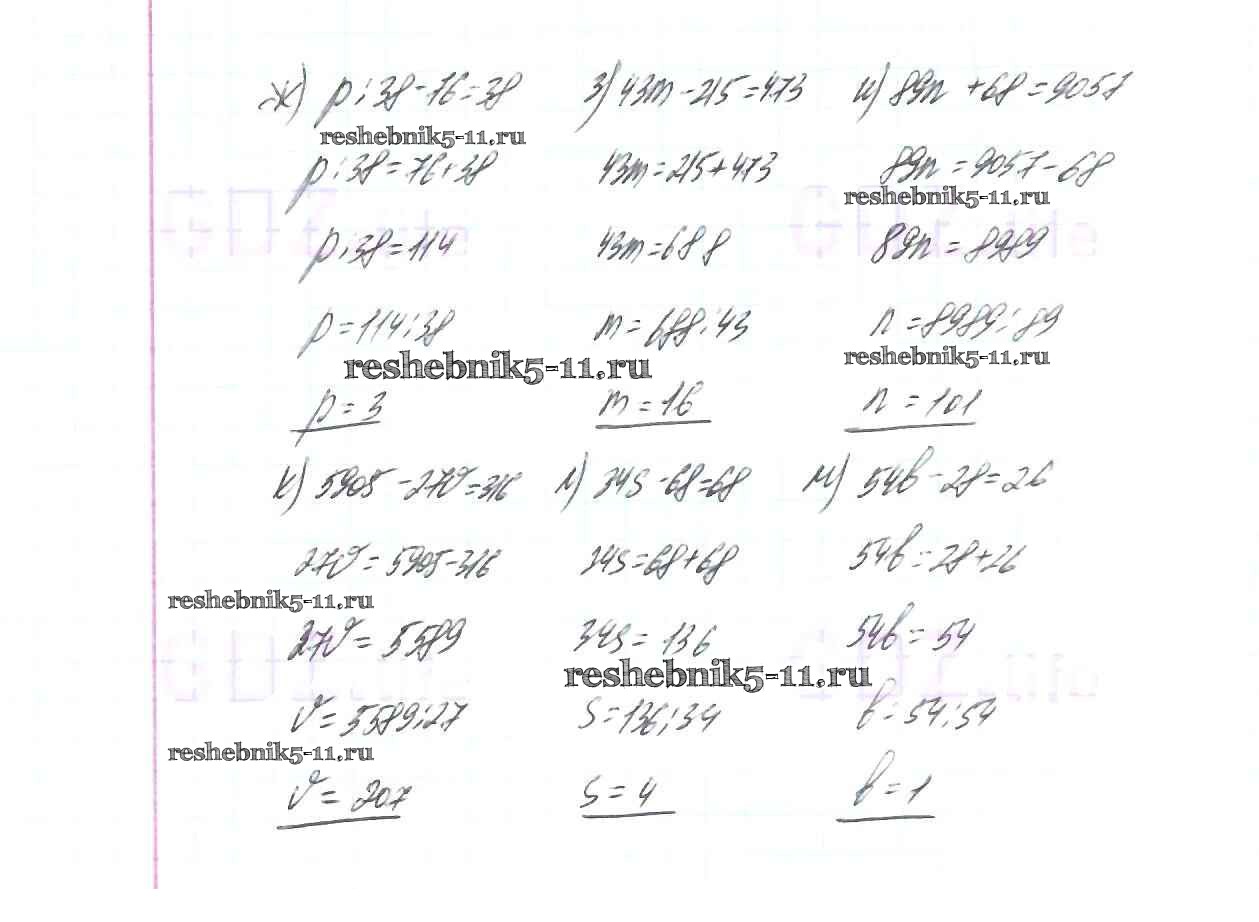 ж) p:38-76=38 з) 43m-215=473 и) 89n+68=9057
reshebnik5-11.ru
p:38=76+38 43m=215+473 89n=9057-68
reshebnik5-11.ru
p:38=114 43m=688 89n=8989
p=114:38 m=688:43 n=8989:89
reshebnik5-11.ru reshebnik5-11.ru
p=3 m=16 n=101
к) 5905-27v=316 л) 34s-68=68 м) 54b-28=26
27v=5905-316 34s=68+68 54b=28+26
reshebnik5-11.ru
27v=5589 34s=136 54b=54
reshebnik5-11.ru
v=5589:27 s=136:34 b=54:54
reshebnik5-11.ru
v=207 s=4 b=1